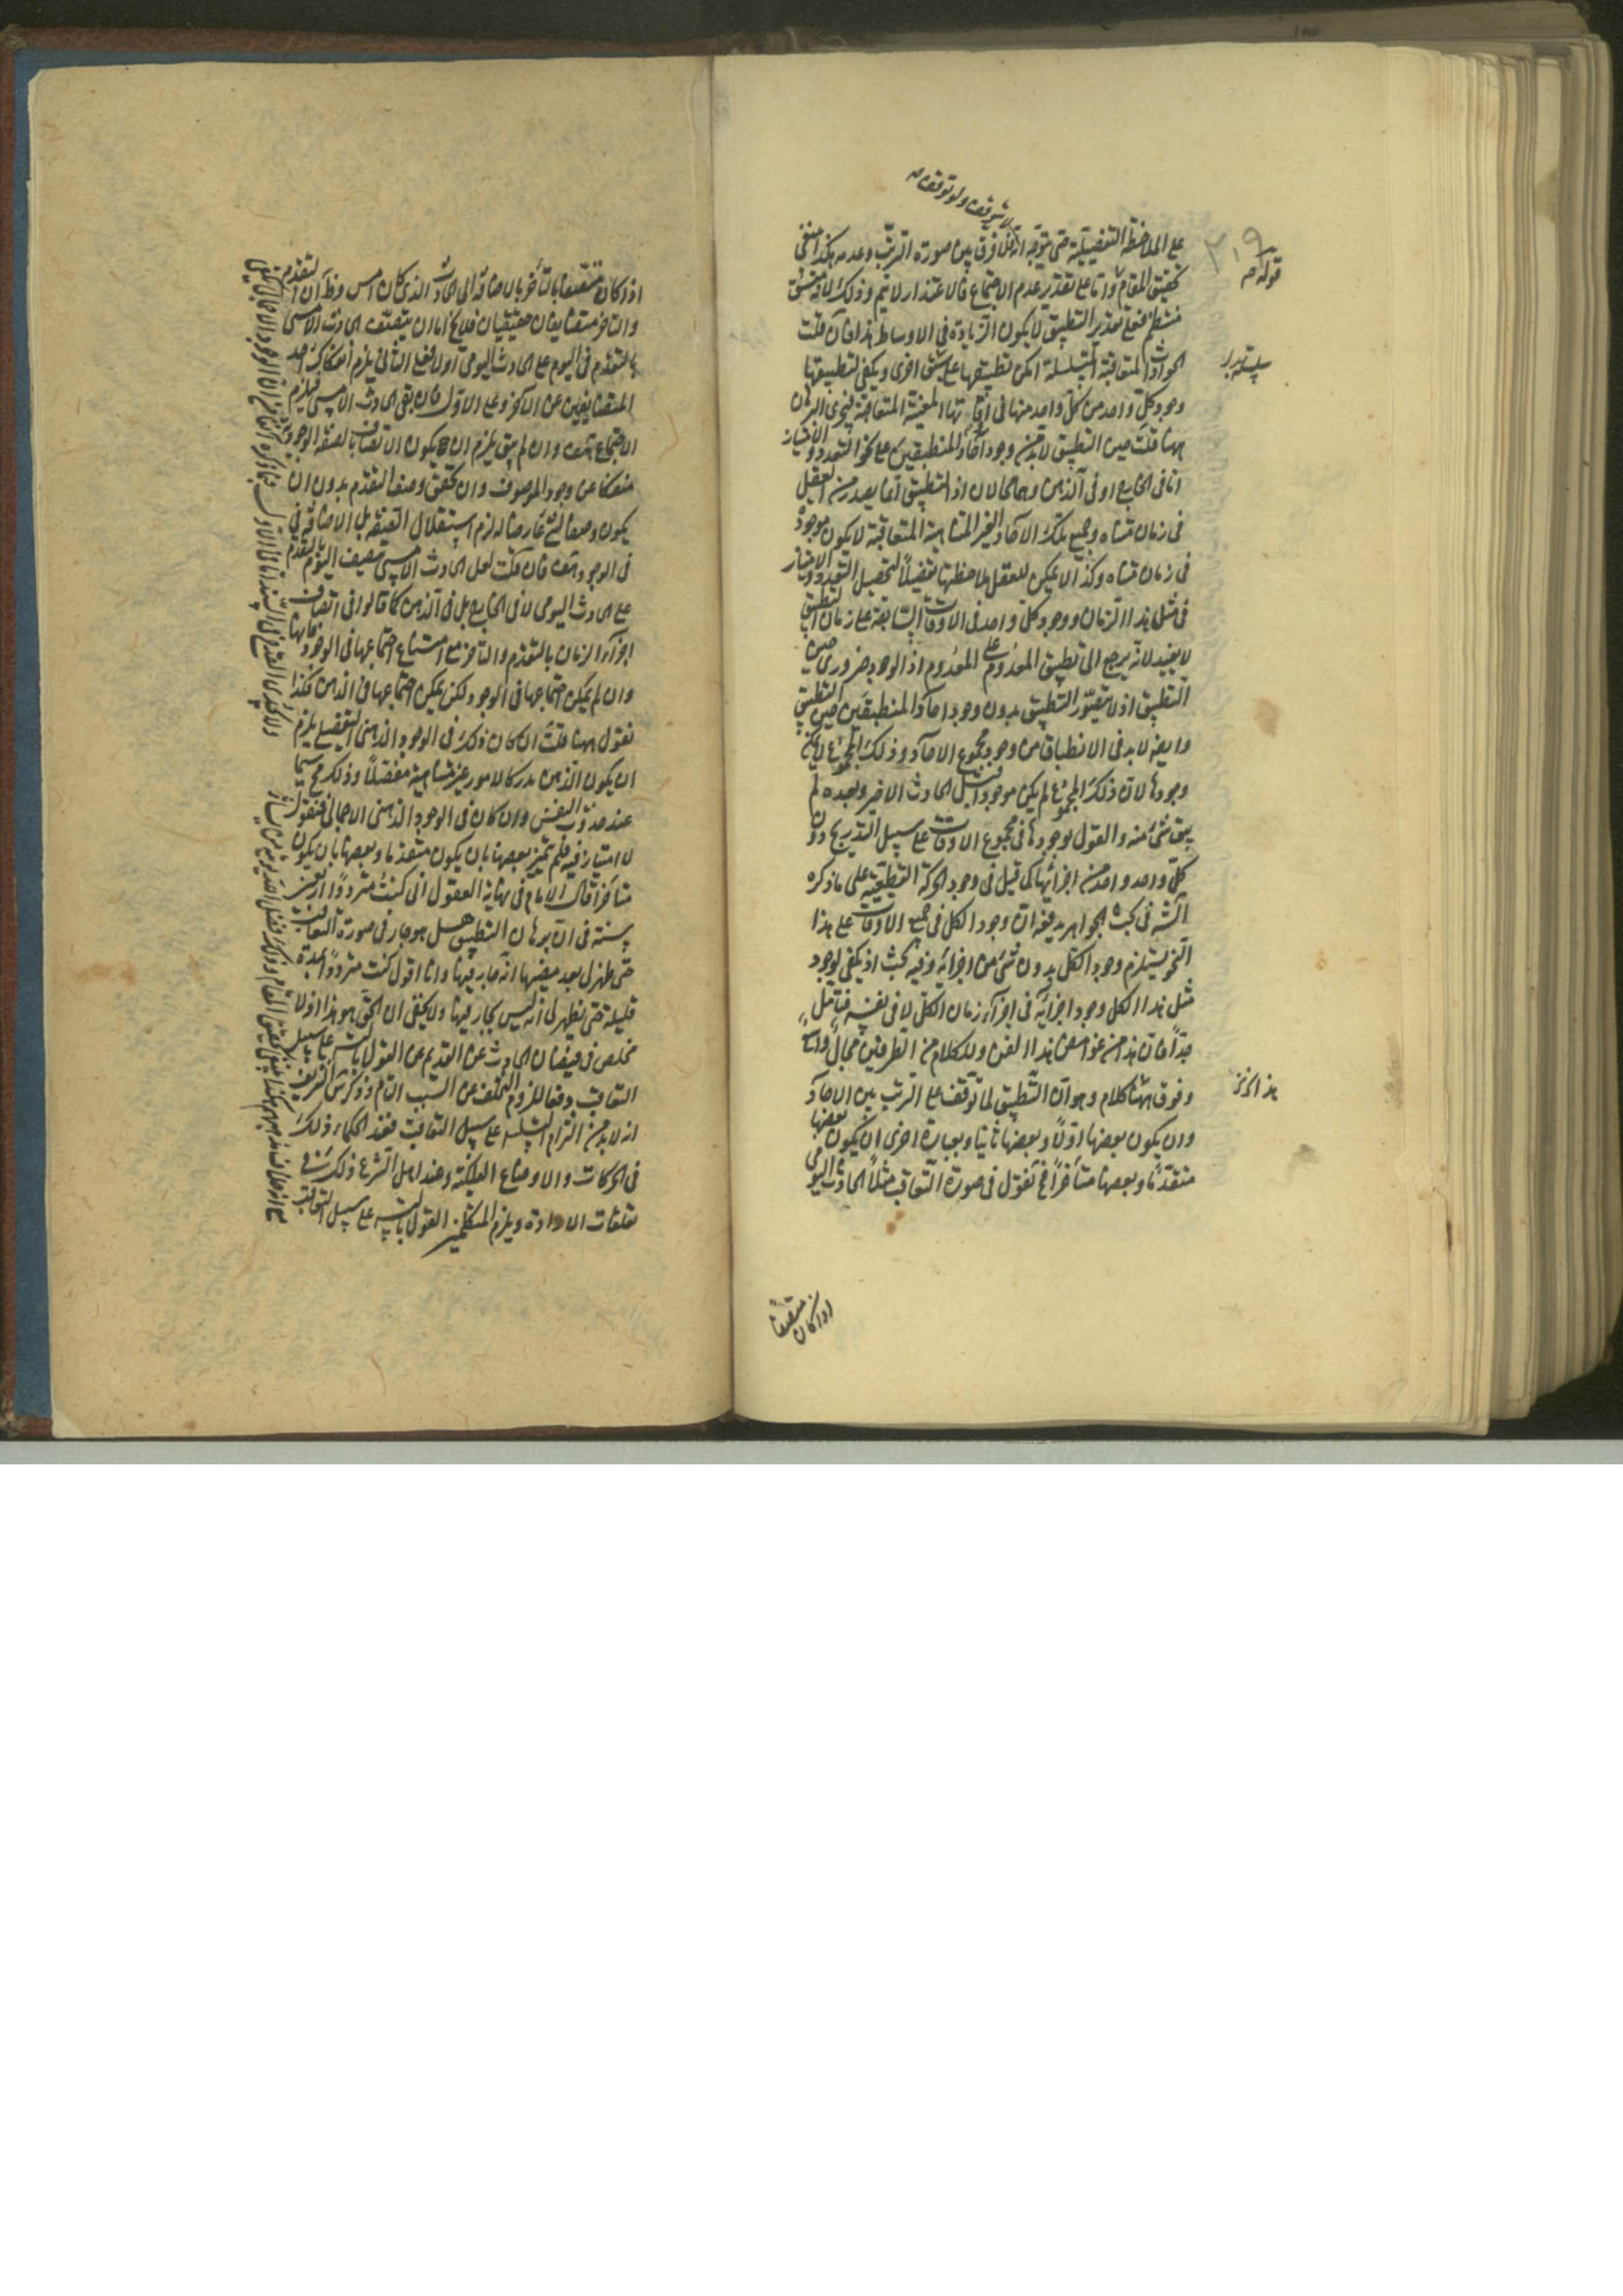 لا بتوقف ولو توقف
على الملاحظة التفصيلية حتى يتوجه انه لا فرق بين صورة الترتب وعدمه هكذا ينبغي
تحقيق المقام واما على تقدير عدم الاجتماع فالاعتذار لا يتم وذلك لانه متسق
منتظم فعلى تقدير التطبيق لا يكون الزيادة في الاوساط هذا فان قلت
الحوادث المتعاقبة المتسلسلة امكن تطبيقها على سلسلة اخرى ويكفي لتطبيقها
وجود كل واحد من كل واحد منها في اوقاتها المعينة المتعاقبة فيجري البرهان
ههنا قلت حين التطبيق لا بد من وجود آحاد المنطبقين على نحو التعدد والامتياز
اما في الخارج او في الذهن وهما محالان اذ التطبيق انما يصدر من العقل
في زمان متناه وجميع تلك الآحاد الغير المتناهية المتعاقبة لا يكون موجودة
في زمان متناه وكذا لا يمكن للعقل ملاحظتها تفصيلاً لتحصيل التعدد والامتياز
في مثل هذا الزمان ووجود كل واحد في الاوقات السابقة على زمان التطبيق
لا يفيد لانه يرجع الى تطبيق المعدوم على المعدوم اذ الوجود ضروري حين
التطبيق اذ لا يتصور التطبيق بدون وجود آحاد المنطبقين حين التطبيق
وايضا لا بد في الانطباق من وجود مجموع الآحاد وذلك المجموع لا يمكن
وجودها لان ذلك المجموع لم يكن موجودا قبل الحادث الاخير وبعده لم
يبق شئ منه والقول بوجودها في مجموع الاوقات على سبيل التدريج دون
كل واحد واحد من اجزائها كما قيل في وجود الحركة القطعية على ما ذكره
الش في بحث الجواهر يدفعه ان وجود الكل في جميع الاوقات على هذا
النحو يستلزم وجود الكل بدون شئ من اجزائه وفيه بحث اذ يكفي لوجود
مثل هذا الكل وجود اجزائه في اجزاء زمان الكل لا في نفسه فتأمل
جداً فان هذا من غوامض هذا الفن وللكلام من الطرفين مجال واسع
وفوق هنا كلام وهو ان التطبيق لما توقف على الترتب بين الآحاد
وان يكون بعضها اولاً وبعضها ثانيا وبعبارة اخرى ان يكون بعضها
متقدما وبعضها متأخراً فح نقول في صورة التعاقب مثلاً الحادث اليومي
اذا كان متصفا
قوله
سلسلة
٢١٩
اذا كان متصفا بالتأخر بالاضافة الى الحادث الذي كان امس وظ ان التقدم
والتأخر متضايفان حقيقيان فلا يخ اما ان يتصف الحادث الامسي
بالتقدم في اليوم على الحادث اليومي او لا فعلى الثاني يلزم انفكاك احد
المتضايفين عن الآخر وعلى الاول فان بقي الحادث الامسي فيلزم
الاجتماع هف وان لم يبق يلزم ان يكون الاتصاف بالصفة الوجودية
منفكا عن وجود الموصوف وان تحقق وصف التقدم بدون ان
يكون وصفا لشئ عارضا له لزم استقلال الصفة بل الاضافة في
في الوجود هف فان قلت لعل الحادث الامسي متصف اليوم بالتقدم
على الحادث اليومي لا في الخارج بل في الذهن كما قالوا في اتصاف
اجزاء الزمان بالتقدم والتأخر مع امتناع اجتماعها في الوجود فانها
وان لم يمكن اجتماعها في الوجود لكن يمكن اجتماعها في الذهن فكذا
نقول ههنا قلت ان كان ذلك في الوجود الذهني التفصيلي يلزم
ان يكون الذهن مدركا لامور غير متناهية مفصلاً وذلك مح سيما
عند حدوث النفس وان كان في الوجود الذهني الاجمالي فنقول
لا امتياز فيه فلم يتميز بعضها بان يكون متقدما وبعضها بان يكون
متأخرا قال الامام في نهاية العقول اني كنت مترددا اربعين
سنة في ان برهان التطبيق هل هو جار في صورة التعاقب
حتى ظهر لي بعد مضيها انه جار فيها وانا اقول كنت مترددا مدة
قليلة حتى ظهر لي انه ليس بجار فيها ولا يخفى ان الحق هو هذا اذ لا
مخلص في فيضان الحادث عن القديم عن القول بالتس على سبيل
التعاقب دفعا للزوم التخلف عن السبب التام وذكر ش الشريف
انه لا بد من التزام التسلسل على سبيل التعاقب فعند الحكماء ذلك
في الحركات والاوضاع الفلكية وعند اهل الشرع ذلك في
تعلقات الارادة ويلزم المتكلمين القول بالتس على سبيل التعاقب